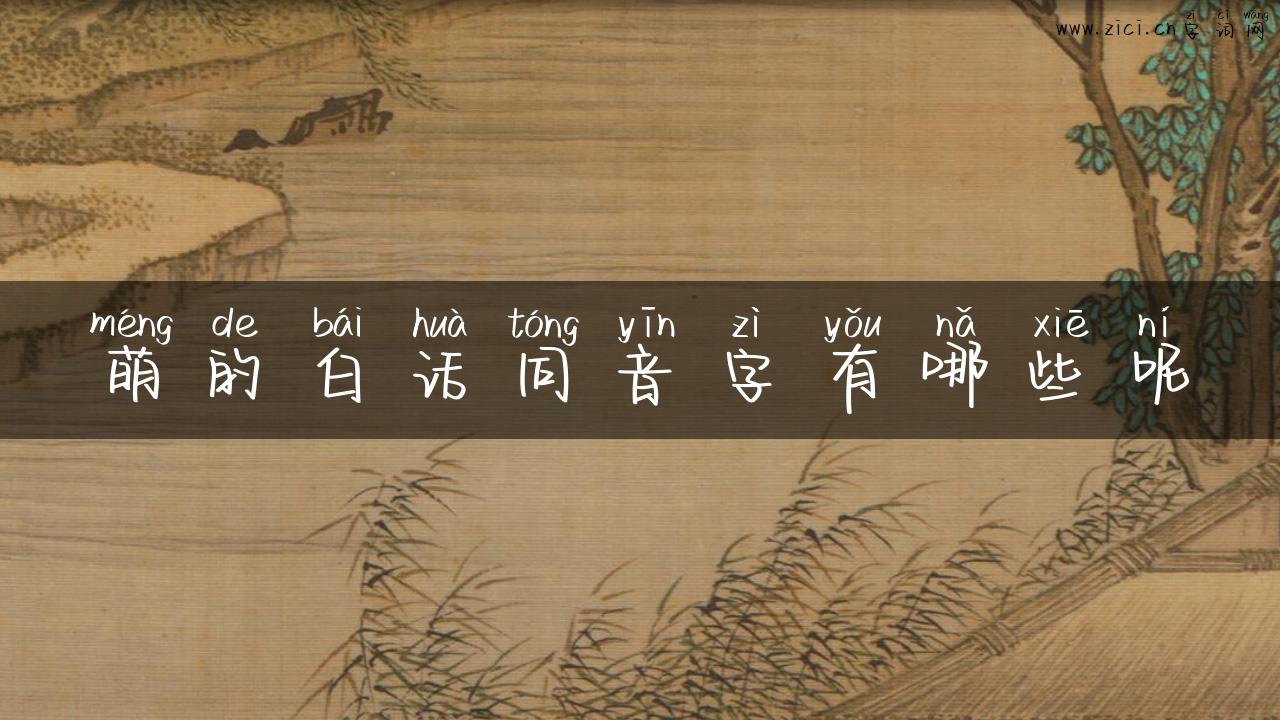 zì cí wǎng
www.zici.cn 字词网
méng de bái huà tóng yīn zì yǒu nǎ xiē ní
萌的白话同音字有哪些呢